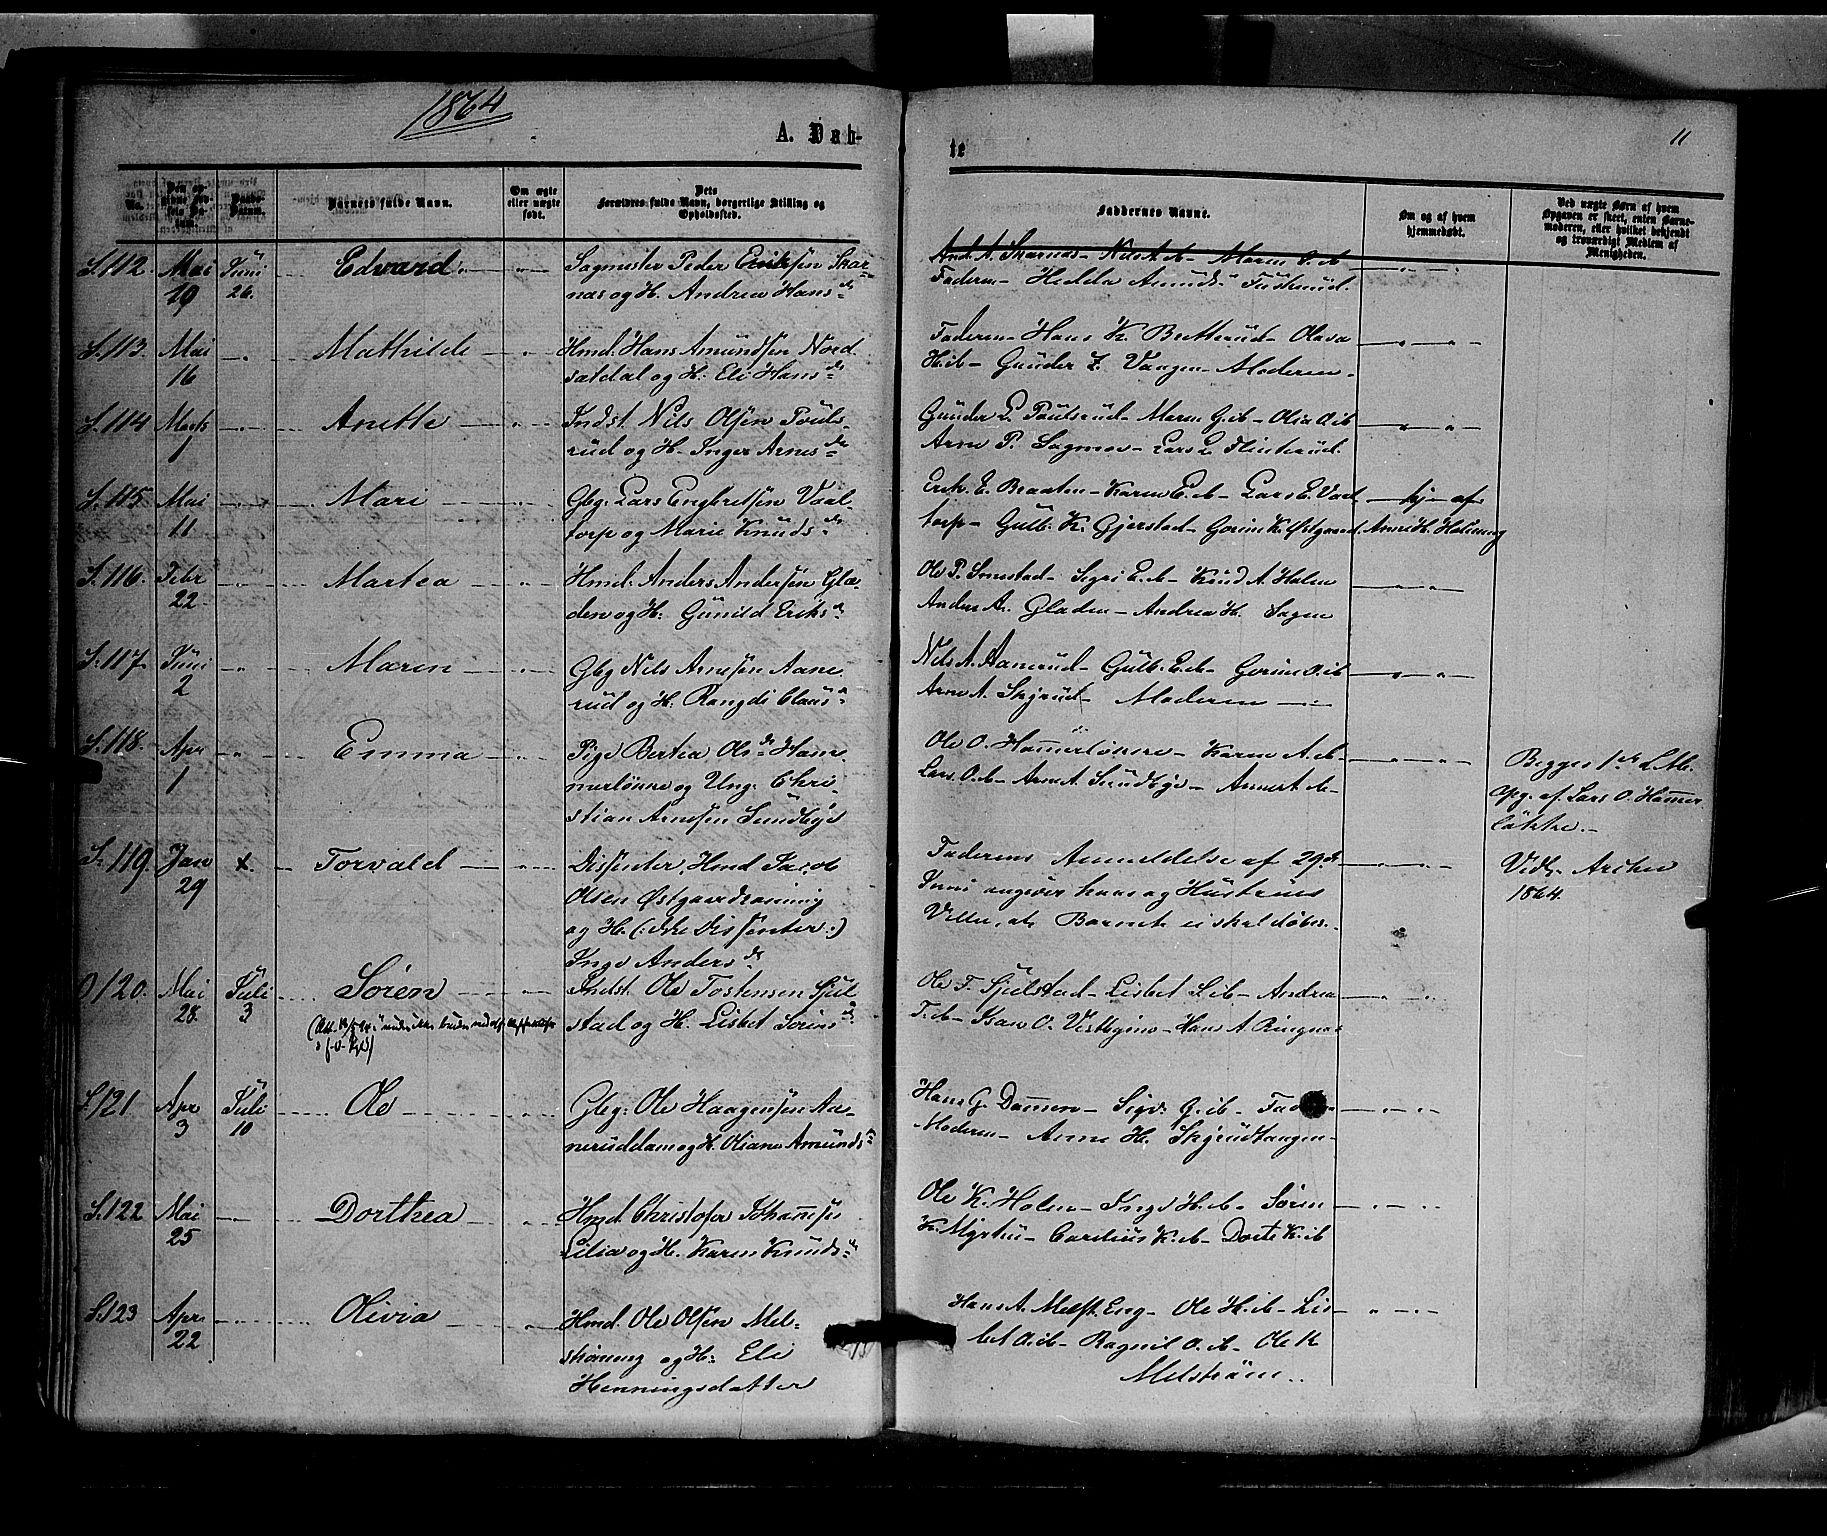 1864
A. Døb-
te
11
No.
Barnets fulde Navn.
Om ægte eller uægte født.
Dets Forældres fulde Navn, borgerlige Stilling og Opholdssted.
Faddernes Navne.
Om og af hvem hjemmedøbt.
Ved uægte Børn af hvem Opgaven er skeet, enten Barnemoderen, eller hvilket bekjendt og troværdigt Medlem af Menigheden.
S. 112. Mai 19 Juni 26. Edvard
Sagmester Peder Eriksen Skar-
nes og H. Andrea Hansd.
And. A. Skarnæs - Nils A. ib - Maren O. ib
Faderen - Hedda Amunds
S. 113. Mai 16 Mathilde
Hmd. Hans Amundsen Nord
sætdal og H: Eli Hansd.
Faderen - Hans K. Bretterud - Olava
H. ib - Gunder Vangen - Moderen.
S. 114 Marts 1 Anette
Indst. Nils Olsen Pouls-
rud og H. Inger Arnesd.
Gunder L. Poulsrud - Maren G. ib - Olia O. ib
Arne P. Sagmoe - Lars L.
S. 115 Mai 11 Mari
Gbg: Lars Engbretsen Vaal-
torp og Marie Knudsd.
Erik E. Braaten - Karen E. ib - Lars E. Vaal
torp - Gulb. K. Gjerstad - Gorine K. Østgaard
hj. af
S. 116. Febr 22 Martea
Hmd: Anders Andersen Glæ-
den og H: Gunild Eriksd.
Ole P. Smestad - Sigri E. ib - Knud A. Holen
Anders A. Gladen - Andrea H. Sagen
S. 117 Juni 2 Maren
Gbg Nils Arnesen Aane
rud og H. Rangdi Clausd.
Nils A. Aanerud - Gulb. E. ib - Gorine O. ib
Arne A. Skjerud - Moderen
S. 118. Apr 1 Emma
Pige Bertea Olsd. Ham-
merløkke og Ung: Chri-
stian Arnesen Sundbye
Ole O. Hammerløkke - Karen A. ib
Lars O. ib - Arne A. Sundbye - Anne A. ib
Begges 1ste
Opg. af Lars O. Hammer
løkke.
S. 119. Jan 29 x. Torvald
Dissenter, Hmd Jacob
Olsen Østgaardræning
og H. (: ikke Dissenter :)
Inge Andersd.
Faderens Anmeldelse af 29de
Juni angiver hans og Hustrues
Villie, at Barnet ei skal døbes.
Vide Archiv
1864.
O 120. Mai 28. Juli 3 Søren
Indst. Ole Tostensen Sjul
stad og H. Lisbet Sørensd.
Ole T. Sjulstad - Lisbet S. ib - Andrea
T. ib - Isak O. Vestbymo - Hans A. Ringnæs
S. 121 Apr 3 Juli 10 Ole
Gbg: Ole Haagensen Aa-
neruddam og H. Oliane Amundsd.
Hans G. Dammen - Sigr. G. ib - Faderen
Moderen - Anne H. Skjerudtangen
S. 122 Mai 25 Dorthea
Hmd. Christofer Johannesen
Lilia og H. Karen Knudsd.
Ole K. Holen - Inge H. ib - Søren
K. Myrtiu - Carelius K. ib - Dorte K. ib
S. 123 Apr 22 Olivia
Hmd. Ole Olsen Mel-
strøm og H: Eli
Henningsdatter
Hans A. Melst. Eng - Ole H. ib - Lis-
bet O. ib - Ragnil O. ib - Ole K
Melstrøm